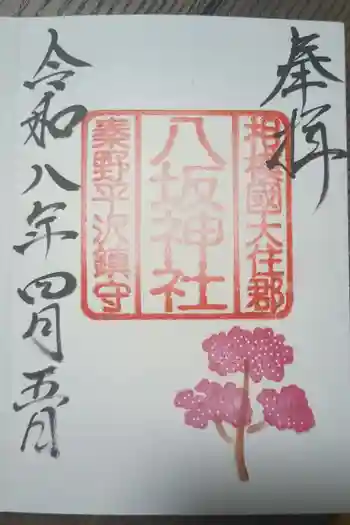 奉拝
相模國大住郡
八坂神社
秦野平沢鎮守
令和八年四月五日